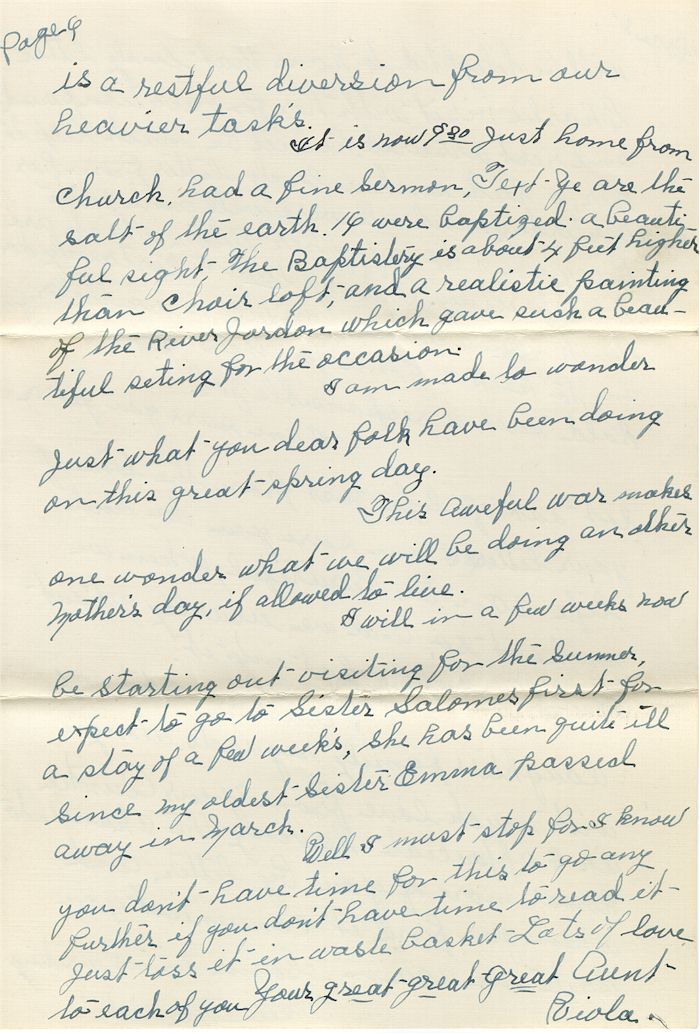 Page 6
is a restful diversion from our
heavier task's.
It is now 9 30 Just home from
Church, had a fine Sermon, Text- Ye are the
salt of the earth. 14 were baptized. a beauti-
ful sight- The Baptistery is about 4 feet higher
than Choir loft, and a realistic painting
of the River Jordon which gave such a beau-
tiful seting for the occasion.
I am made to wonder
Just what you dear folk have been doing
on this great spring day.
This aweful war makes
one wonder what we will be doing an other
Mother's day, if allowed to live.
I will in a few weeks now
be starting out visiting for the Summer,
expect to go to Sister Salomes first for
a stay of a few week's, she has been quite ill
since my oldest Sister Emma passed
away in March.
Well I must stop for I know
you don't have time for this to go any
further if you don't have time to read it-
Just toss it in waste basket- Lots of love
to each of you Your great-great-great Aunt-
Viola.